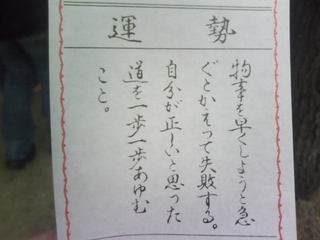 運勢
物事を早くしようと急
ぐとかえって失敗する。
自分が正しいと思った
道を一歩一歩あゆむ
こと。